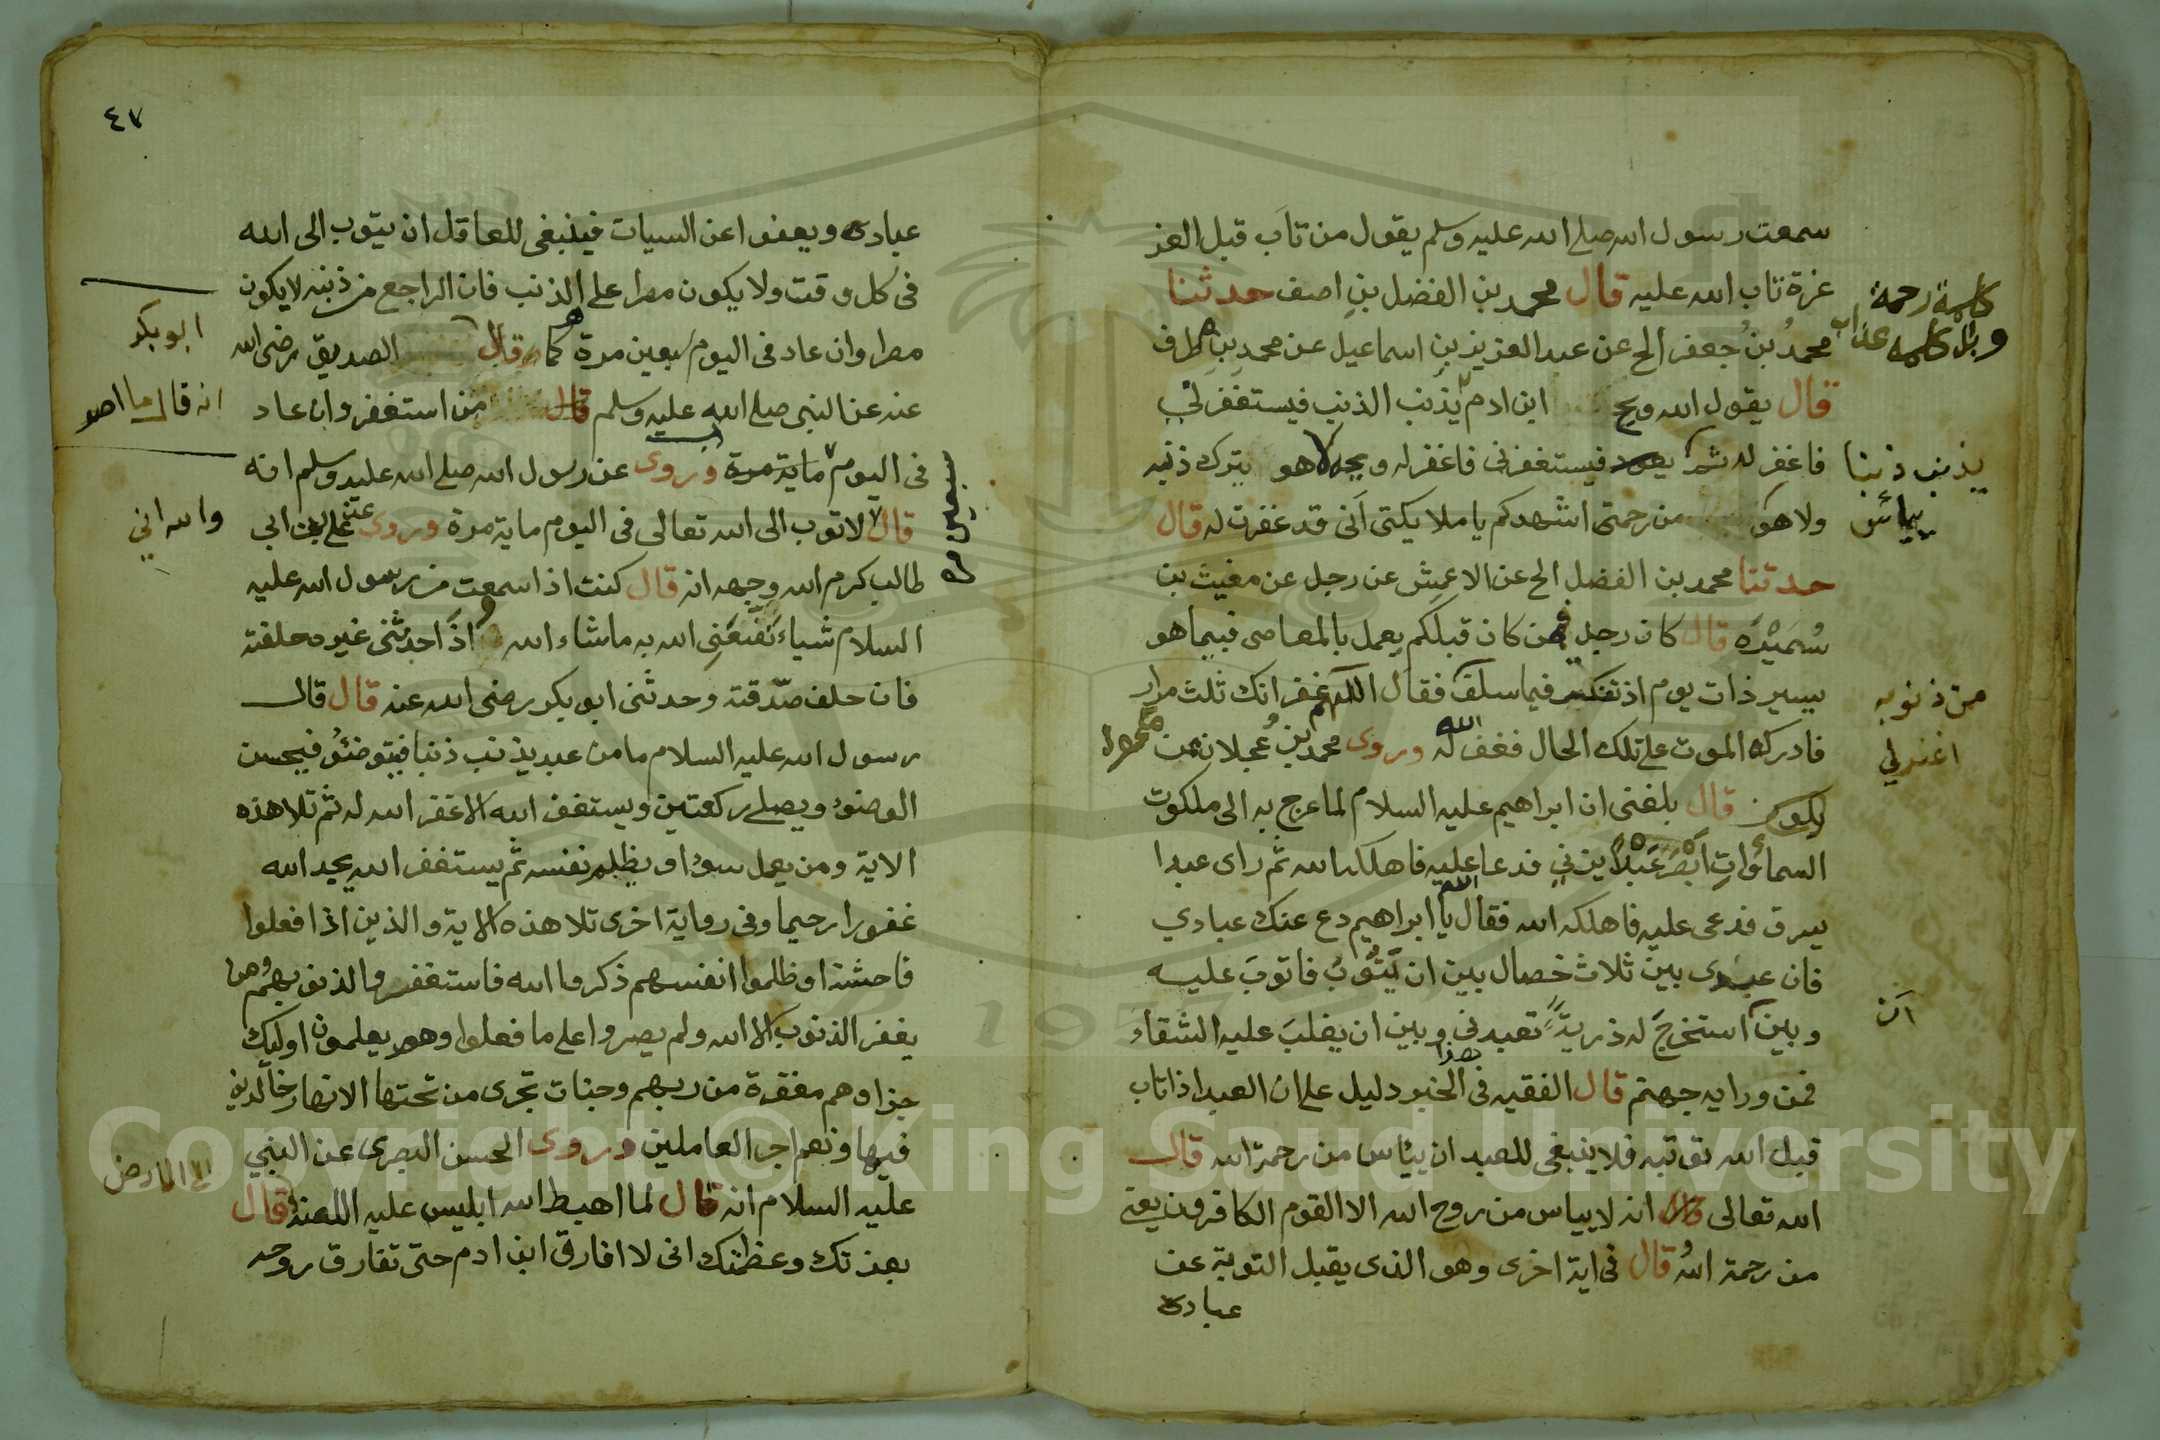 سمعت رسول الله صلى الله عليه وسلم يقول من تاب قبل الغر
غرة تاب الله عليه قال محمد بن الفضل بن اصف حدثنا
محمد بن جعفر الخ عن عبد العزيز بن اسماعيل عن محمد بن مطرف
قال يقول الله ويح ابن ادم يذنب الذنب فيستغفر لي
فاغفر له ثم يعود فيستغفرني فاغفر له ويحه لا هو يترك ذنبه
ولا هو من رحمتي اشهدكم يا ملايكتي اني قد غفرت له قال
حدثنا محمد بن الفضل الخ عن الاعمش عن رجل عن مغيث بن
سميده قال كان رجل فمن كان قبلكم يعمل بالمعاصي فبيما هو
يسير ذات يوم اذ تفكر فيما سلف فقال اللهم غفرانك ثلث مرار
فادركه الموت على تلك الحال فغفر الله له وروى محمد ابن عجلان عن
مكحول قال بلغني ان ابراهيم عليه السلام لما عرج به الى ملكوت
السماوات ابصر عبدا يزني فدعا عليه فاهلكه الله ثم راى عبدا
يسرق فدعى عليه فاهلكه الله فقال الله يا ابراهيم دع عنك عبادي
فان عبدى بين ثلاث خصال بين ان يتوب فاتوب عليه
وبين استخرج له ذرية تعبدني وبين ان يغلب عليه الشقاء
فمن ورايه جهنم قال الفقيه فى هذا الخبر دليل على ان العبد اذا تاب
قبل الله توتبه فلا ينبغى للعبد ان يياس من رحمة الله قال
الله تعالى انه لا يياس من روح الله الا القوم الكافرون يعنى
من رحمة الله قال فى اية اخرى وهو الذى يقبل التوبة عن
عباده
كلمة رحمة
كلمة عذاب
يذنب ذنبا
يياس
من ذنوبه
اغفرلي
ان
٤٧
عباده ويعفوا عن السيات فينبغى للعاقل ان يتوب الى الله
فى كل وقت ولا يكون مصرا على الذنب فان الراجع من ذنبه لا يكون
مصرا وان عاد فى اليوم سبعين مرة كما قال الصديق رضى الله
عنه عن النبى صلى الله عليه وسلم قال من استغفر وان عاد
فى اليوم ماية مرة وروى عن رسول الله صلى الله عليه وسلم انه
قال لاتوب الى الله تعالى فى اليوم ماية مرة وروى عن على بن ابى
طالب كرم الله وجهه انه قال كنت اذا سمعت من رسول الله عليه
السلام شياء نفعني الله به ما شاء الله واذا حدثنى غيره حلفته
فان حلف صدقته وحدثنى ابو بكر رضى الله عنه قال قال
رسول الله عليه السلام ما من عبد يذنب ذنبا فيتوضئو فيحسن
الوضوء ويصلى ركعتين ويستغفر الله الا غفر الله له ثم تلا هذه
الاية ومن يعمل سوءا او يظلم نفسه ثم يستغفر الله يجد الله
غفورا رحيما وفى رواية اخرى تلا هذه الاية والذين اذا فعلوا
فاحشة او ظلموا انفسهم ذكروا الله فاستغفروا لذنوبهم ومن
يغفر الذنوب الا الله ولم يصروا على ما فعلوا وهم يعلمون اوليك
جزاوهم مغفرة من ربهم وجنات تجرى من تحتها الانهار خالدين
فيها ونعم اجر العاملين وروى الحسن البصرى عن النبي
عليه السلام انه قال لما اهبط الله ابليس عليه اللعنة قال
بعزتك وعظمتك انى لا افارق ابن ادم حتى تفارق روحه
ابو بكر
انه قال ما اصر
والله اني
سبعين مرة
الى الارض
Copyright © King Saud University
1957